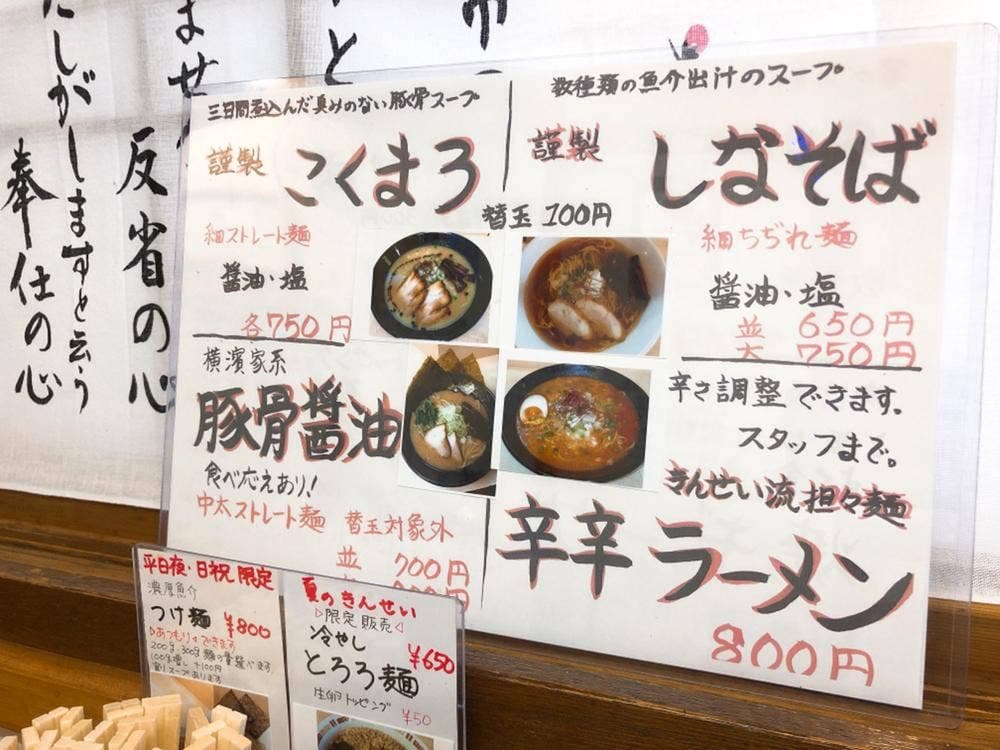 三日間煮込んだ臭みのない豚骨スープ
謹製 こくまろ
細ストレート麺
醤油・塩
各750円
数種類の魚介出汁のスープ
謹製 しなそば
替玉 100円
細ちぢれ麺
醤油・塩
並 650円
大 750円
横濱家系
豚骨醤油
食べ応えあり!
中太ストレート麺 替玉対象外
並 700円
辛さ調整できます。
スタッフまで。
きんせい流担々麺
辛辛ラーメン
800円
平日夜・日祝限定
濃厚魚介
つけ麺 ¥800
あつもりもできます
200g、300g麺の量選べます
100g増し +100円
割りスープあります
夏のきんせい
▷限定販売◁
冷やし
とろろ麺 ¥650
生卵トッピング ¥50
反省の心
たしがしますと云う
奉仕の心
ませ
と
の